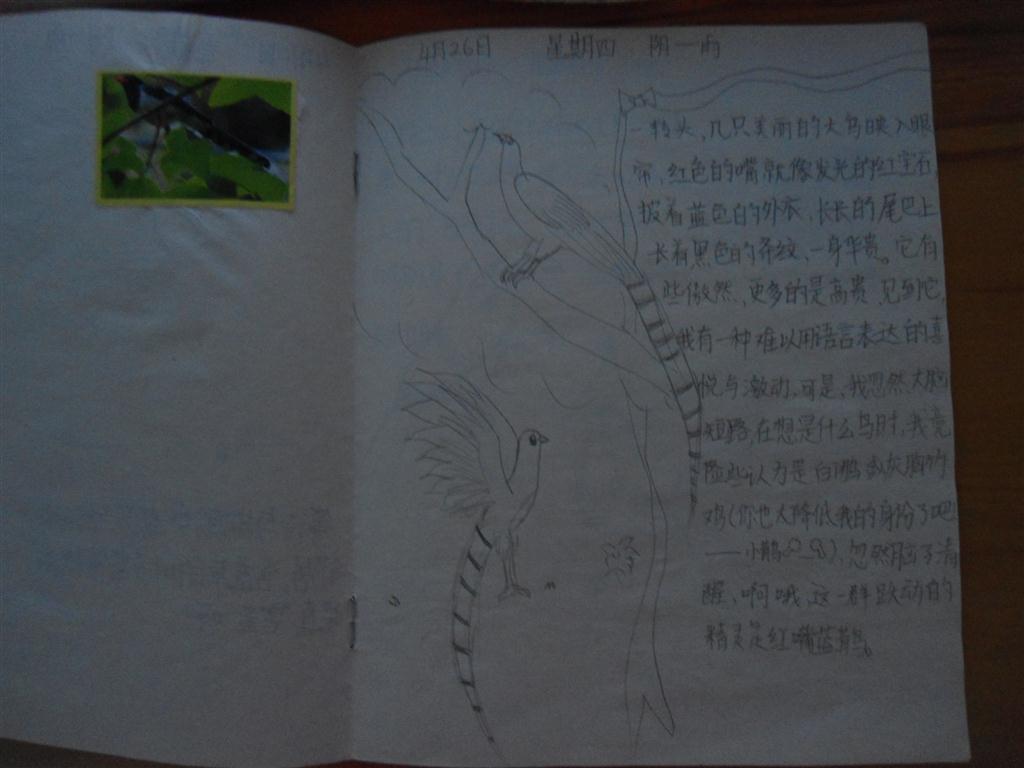 4月26日 星期四 阴—雨
一抬头,几只美丽的大鸟映入眼
帘,红色的嘴就像发光的红宝石
披着蓝色的外衣,长长的尾巴上
长着黑色的条纹,一身华贵。它有
些傲然,更多的是高贵,见到它,
我有一种难以用语言来达的喜
悦与激动,可是,我忽然大脑
短路,在想是什么鸟时,我竟
险些认为是白鹇或灰胸竹
鸡(你也太降低我的身份了吧
——小鹊),忽然脑子清
醒,啊哦,这一群跃动的
精灵是红嘴蓝鹊。